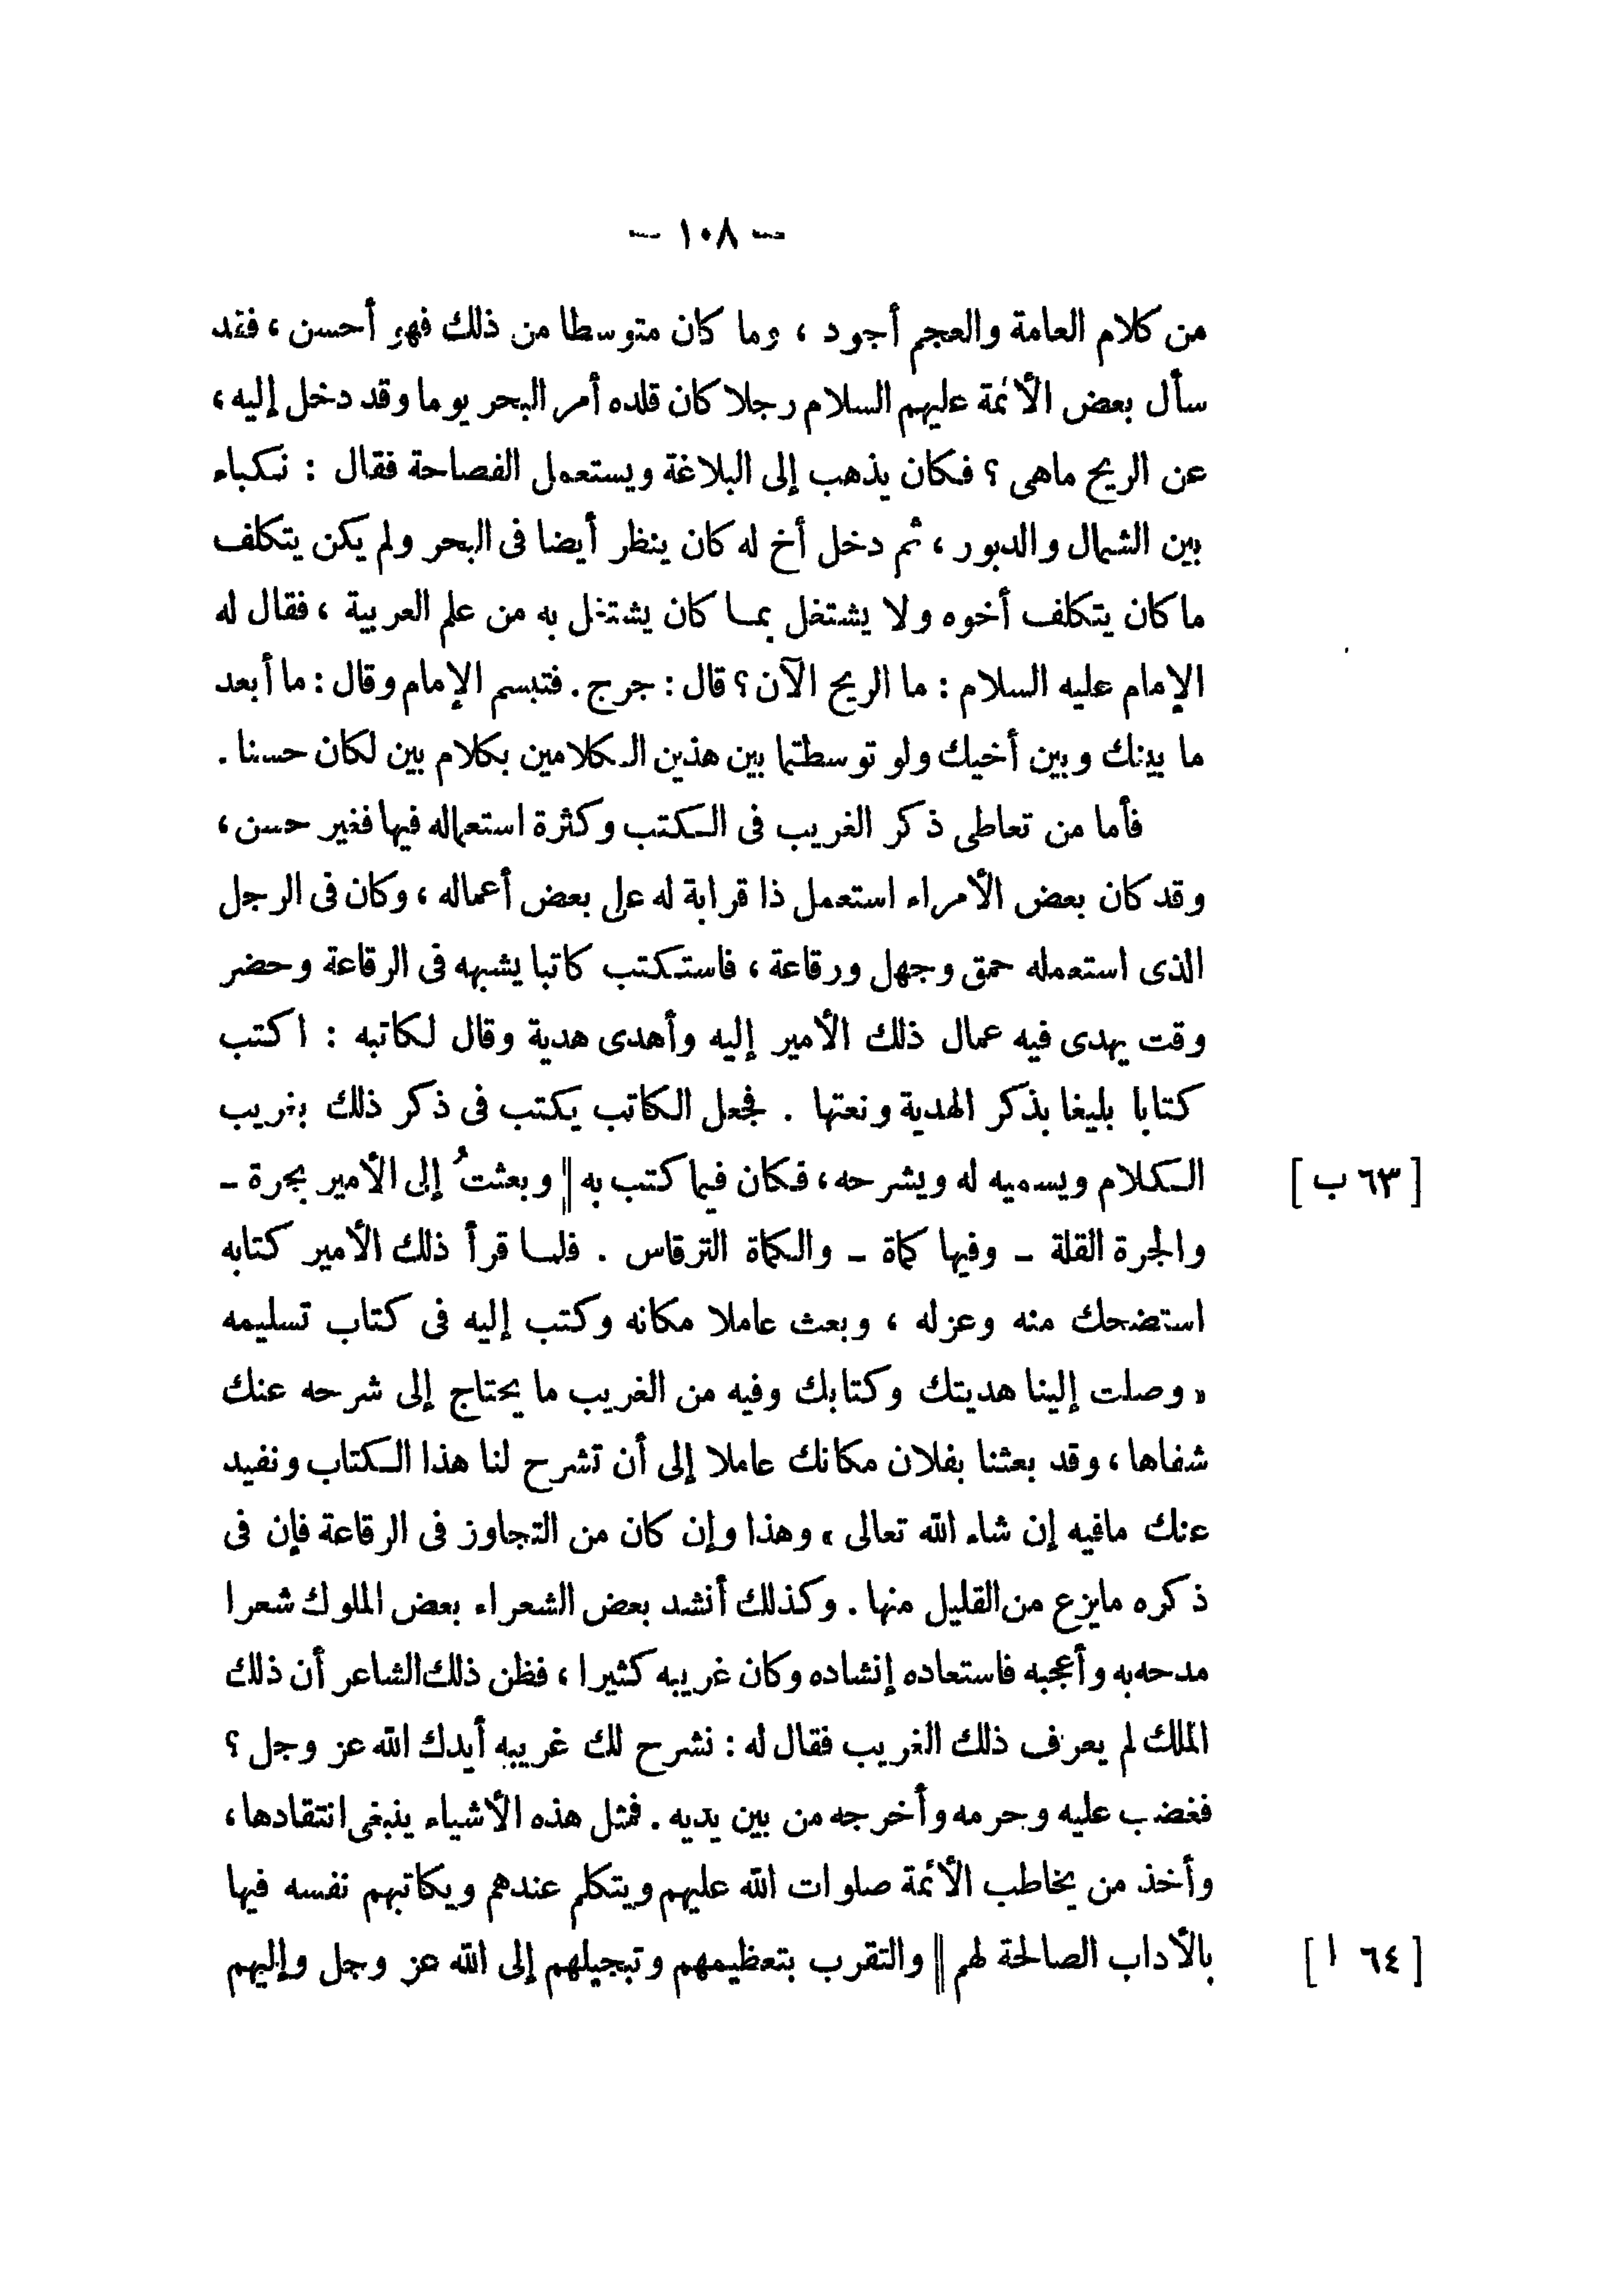 — ١٠٨ —
من كلام العامة والعجم أجود ، وما كان متوسطا من ذلك فهو أحسن ، فقد
سأل بعض الأئمة عليهم السلام رجلا كان قلده أمر البحر يوما وقد دخل إليه ،
عن الريح ماهى ؟ فكان يذهب إلى البلاغة ويستعمل الفصاحة فقال : نكباء
بين الشمال والدبور ، ثم دخل أخ له كان ينظر أيضا فى البحر ولم يكن يتكلف
ما كان يتكلف أخوه ولا يشتغل بما كان يشتغل به من علم العربية ، فقال له
الإمام عليه السلام : ما الريح الآن ؟ قال : جرج . فتبسم الإمام وقال : ما أبعد
ما بينك وبين أخيك ولو توسطتما بين هذين الكلامين بكلام بين لكان حسنا .
فأما من تعاطى ذكر الغريب فى الكتب وكثرة استعماله فيها فغير حسن ،
وقد كان بعض الأمراء استعمل ذا قرابة له على بعض أعماله ، وكان فى الرجل
الذى استعمله حمق وجهل ورقاعة ، فاستكتب كاتبا يشبهه فى الرقاعة وحضر
وقت يهدى فيه عمال ذلك الأمير إليه وأهدى هدية وقال لكاتبه : اكتب
كتابا بليغا بذكر الهدية ونعتها . فجعل الكاتب يكتب فى ذكر ذلك بغريب
الكلام ويسميه له ويشرحه ، فكان فيما كتب به || وبعثتُ إلى الأمير بجرة – [ ٦٣ ب ]
والجرة القلة – وفيها كمأة – والكمأة الترقاس . فلما قرأ ذلك الأمير كتابه
استضحك منه وعزله ، وبعث عاملا مكانه وكتب إليه فى كتاب تسليمه
« وصلت إلينا هديتك وكتابك وفيه من الغريب ما يحتاج إلى شرحه عنك
شفاها ، وقد بعثنا بفلان مكانك عاملا إلى أن تشرح لنا هذا الكتاب ونفيد
عنك مافيه إن شاء الله تعالى » وهذا وإن كان من التجاوز فى الرقاعة فإن فى
ذكره مايزع من القليل منها . وكذلك أنشد بعض الشعراء بعض الملوك شعرا
مدحه به وأعجبه فاستعاده إنشاده وكان غريبه كثيرا ، فظن ذلك الشاعر أن ذلك
الملك لم يعرف ذلك الغريب فقال له : نشرح لك غريبه أيدك الله عز وجل ؟
فغضب عليه وحرمه وأخرجه من بين يديه . فمثل هذه الأشياء ينبغى انتقادها ،
وأخذ من يخاطب الأئمة صلوات الله عليهم ويتكلم عندهم ويكاتبهم نفسه فيها
بالآداب الصالحة لهم || والتقرب بتعظيمهم وتبجيلهم إلى الله عز وجل وإليهم [ ٦٤ ا ]